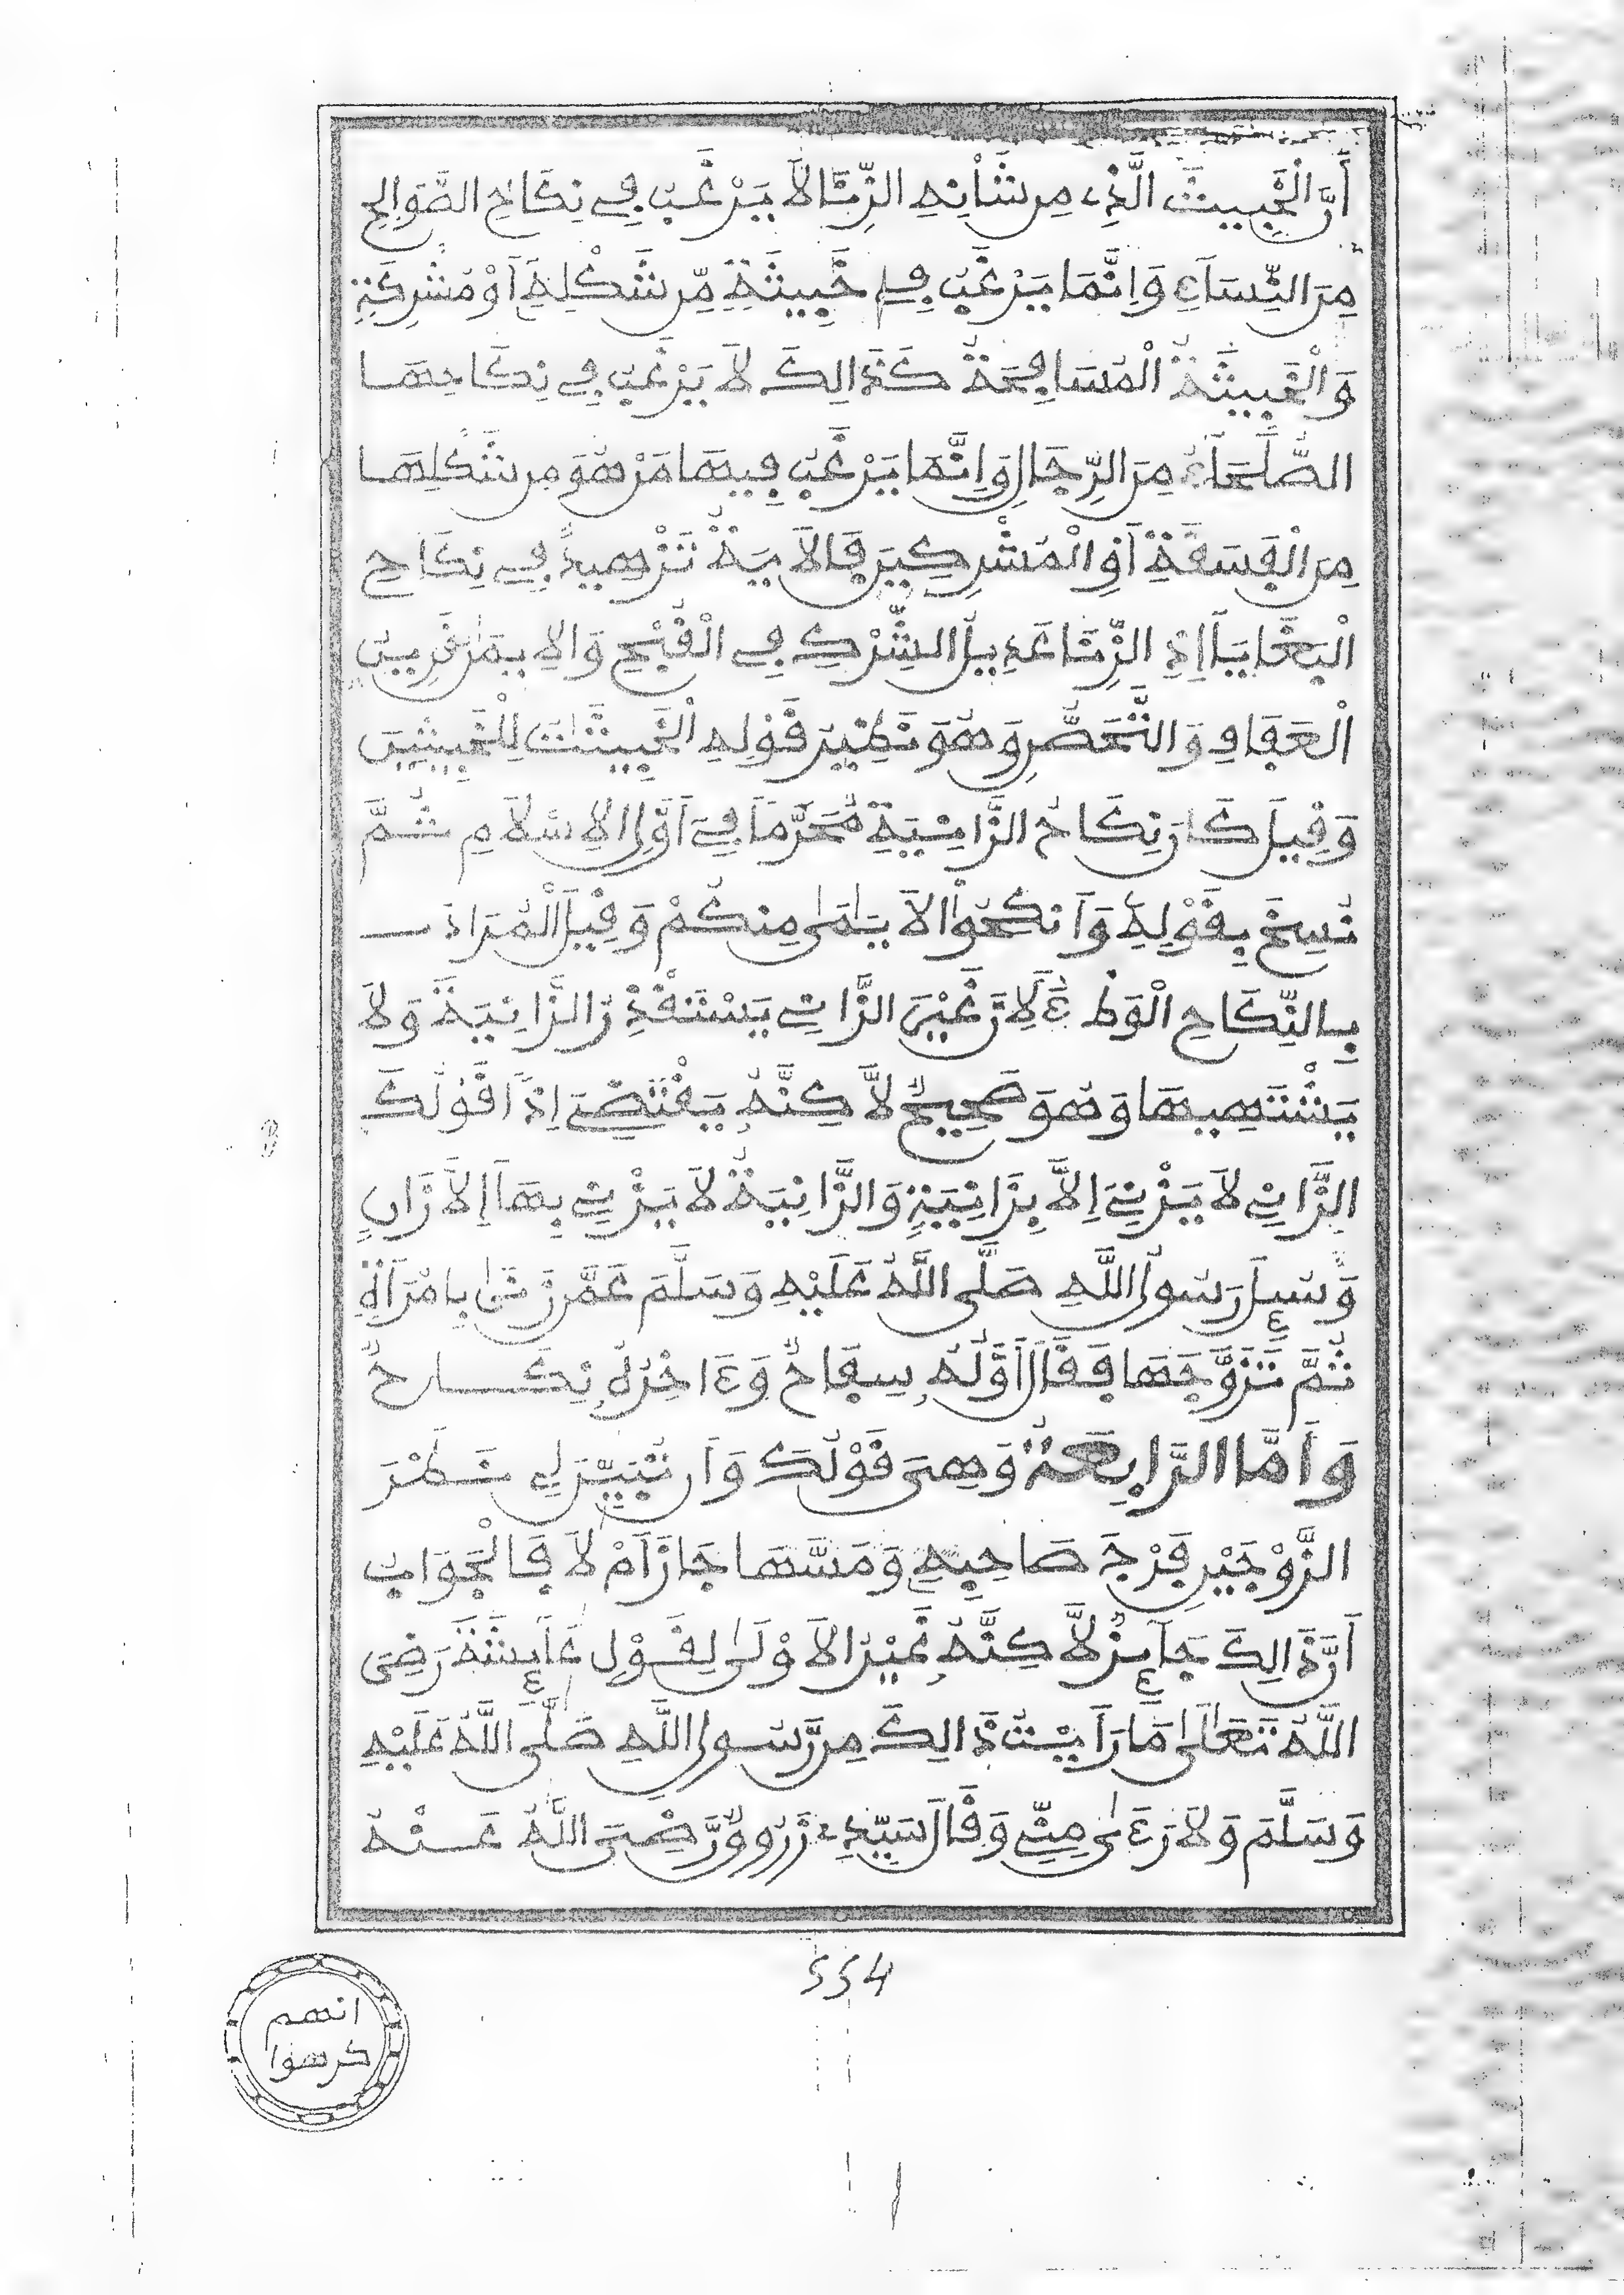 أَنَّ الْخَبِيثَ الَّذِي مِن شَأْنِهِ الزِّنَا لَا يَرْغَبُ فِي نِكَاحِ الصَّوَالِحِ
مِنَ النِّسَاءِ وَإِنَّمَا يَرْغَبُ فِي خَبِيثَةٍ مِّن شَكْلِهِ أَوْ مُشْرِكَةٍ
وَالْخَبِيثَةُ الْمُسَافِحَةُ كَذَالِكَ لَا يَرْغَبُ فِي نِكَاحِهَا
الصُّلَحَاءُ مِنَ الرِّجَالِ وَإِنَّمَا يَرْغَبُ فِيهَا مَنْ هُوَ مِن شَكْلِهَا
مِنَ الْفَسَقَةِ أَوِ الْمُشْرِكِينَ فَالْآيَةُ تَزْهِيدٌ فِي نِكَاحِ
الْبَغَايَا إِذِ الزِّنَا عَدِيلُ الشِّرْكِ فِي الْقُبْحِ وَالْإِيمَانُ قَرِينُ
الْعَفَافِ وَالتَّحَصُّنِ وَهُوَ نَظِيرُ قَوْلِهِ الْخَبِيثَٰتُ لِلْخَبِيثِينَ
وَقِيلَ كَانَ نِكَاحُ الزَّانِيَةِ مُحَرَّمًا فِي أَوَّلِ الْإِسْلَامِ ثُمَّ
نُسِخَ بِقَوْلِهِ وَأَنكِحُوا الْأَيَٰمَىٰ مِنكُمْ وَقِيلَ الْمُرَادُ
بِالنِّكَاحِ الْوَطْءُ لِأَنَّ غَيْرَ الزَّانِي يَسْتَقْذِرُ الزَّانِيَةَ وَلَا
يَشْتَهِيهَا وَهُوَ صَحِيحٌ لَّاكِنَّهُ يَقْتَضِي إِذًا قَوْلَكَ
الزَّانِي لَا يَزْنِي إِلَّا بِزَانِيَةٍ وَالزَّانِيَةُ لَا يَزْنِي بِهَا إِلَّا زَانٍ
وَسُئِلَ رَسُولُ اللَّهِ صَلَّى اللَّهُ عَلَيْهِ وَسَلَّمَ عَمَّن زَنَىٰ بِامْرَأَةٍ
ثُمَّ تَزَوَّجَهَا فَقَالَ أَوَّلُهُ سِفَاحٌ وَءَاخِرُهُ نِكَاحٌ
وَأَمَّا الرَّابِعَةُ وَهِيَ قَوْلُكَ وَأَن تُبَيِّنَ لِي نَظَرَ
الزَّوْجَيْنِ فَرْجَ صَاحِبِهِ وَمَسَّهَا جَازَ أَمْ لَا فَالْجَوَابُ
أَنَّ ذَالِكَ جَائِزٌ لَّاكِنَّهُ غَيْرُ الْأَوْلَىٰ لِقَوْلِ عَائِشَةَ رَضِيَ
اللَّهُ تَعَالَىٰ مَا رَأَيْتُ ذَالِكَ مِن رَّسُولِ اللَّهِ صَلَّى اللَّهُ عَلَيْهِ
وَسَلَّمَ وَلَا رَءَىٰ مِنِّي وَقَالَ سَيِّدِي زَرُّوقٌ رَّضِيَ اللَّهُ عَنْهُ
554
انهم
كرهوا